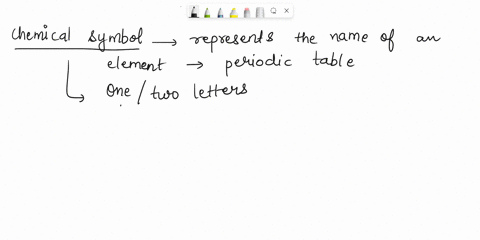 Chemical symbol → represents the name of an
element → periodic table
→ One / two letters